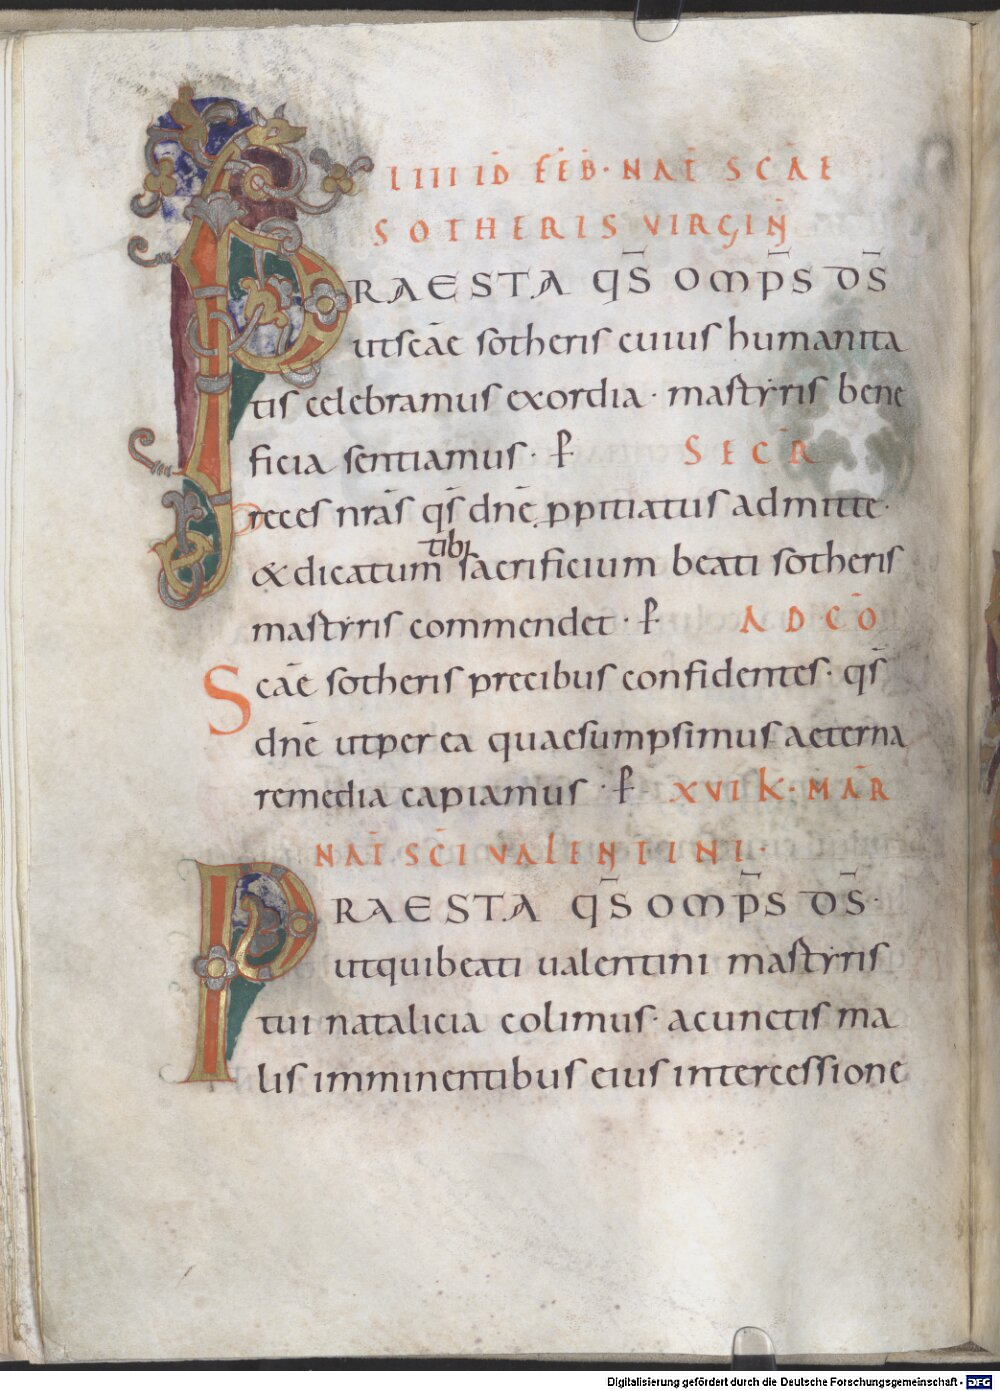 IIII ID FEB · NAT̄ SCAE
SOTHERIS VIRGIN̄
PRAESTA QS̄ OMP̄S DS̄
ut scāe sotheris cuius humanita
tis celebramus exordia · martyris bene
ficia sentiamus · P̄ SECR̄
Preces nrās qs̄ dnē ppitiatus admitte ·
& dicatum tibi sacrificium beati sotheris
martyris commendet · P̄ AD CŌ
Scāe sotheris precibus confidentes · qs̄
dnē ut per ea quae sumpsimus aeterna
remedia capiamus · P̄ XVI K · MAR̄
NAT̄ SC̄I VALENTINI ·
PRAESTA QS̄ OMP̄S DS̄ ·
ut qui beati ualentini martyris
tui natalicia colimus · a cunctis ma
lis imminentibus eius intercessione
Digitalisierung gefördert durch die Deutsche Forschungsgemeinschaft - DFG